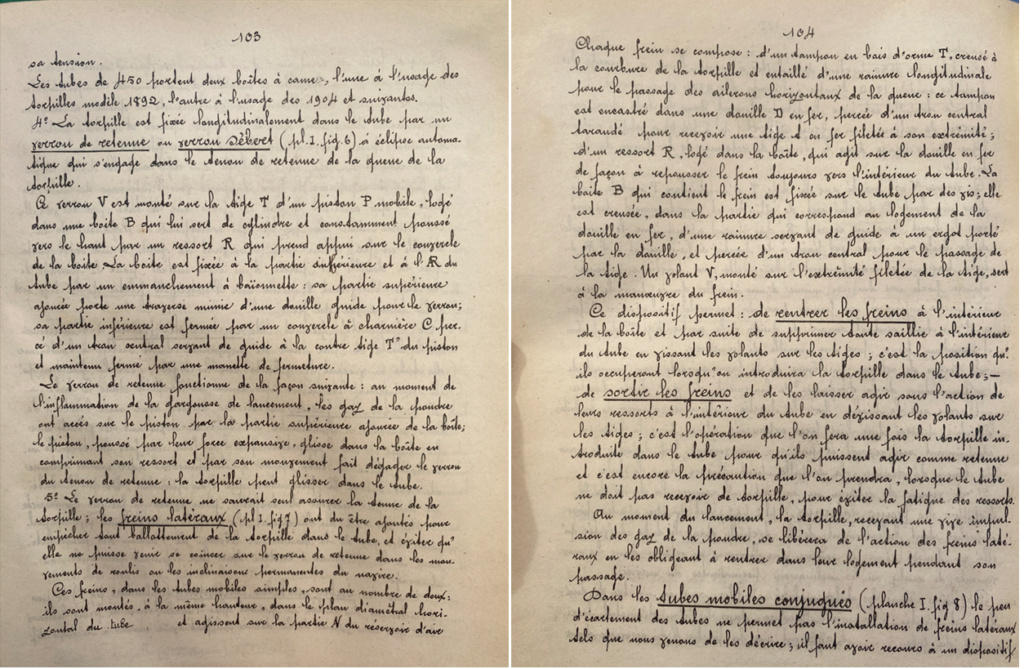 103
sa tension.
Les tubes de 450 portent deux boîtes à came, l'une à l'usage des
torpilles modèle 1892, l'autre à l'usage des 1904 et suivantes.
4° La torpille est fixée longitudinalement dans le tube par un
verrou de retenue ou verrou Débert (pl. I. fig. 6) à éclipse automa-
tique qui s'engage dans le tenon de retenue de la queue de la
torpille.
Ce verrou V est monté sur la tige T d'un piston P mobile, logé
dans une boîte B qui lui sert de cylindre et constamment poussé
vers le haut par un ressort R qui prend appui sur le couvercle
de la boîte. La boîte est fixée à la partie supérieure et à l'AR du
tube par un emmanchement à baïonnette : sa partie supérieure
ajourée porte une traverse munie d'une douille guide pour le verrou;
sa partie inférieure est fermée par un couvercle à charnière C per-
cé d'un trou central servant de guide à la contre tige T" du piston
et maintenu fermé par une manette de fermeture.
Le verrou de retenue fonctionne de la façon suivante : au moment de
l'inflammation de la gargousse de lancement, les gaz de la poudre
ont accès sur le piston par la partie supérieure ajourée de la boîte;
le piston, poussé par leur force expansive, glisse dans la boîte en
comprimant son ressort et par son mouvement fait dégager le verrou
du tenon de retenue : la torpille peut glisser dans le tube.
5° Le verrou de retenue ne saurait seul assurer la tenue de la
torpille; les freins latéraux (pl I. fig 7) ont dû être ajoutés pour
empêcher tout ballottement de la torpille dans le tube, et éviter qu'
elle ne puisse venir se coincer sur le verrou de retenue dans les mou-
vements de roulis ou les inclinaisons permanentes du navire.
Ces freins, dans les tubes mobiles simples, sont au nombre de deux:
ils sont montés, à la même hauteur, dans le plan diamétral hori-
zontal du tube et agissent sur la partie N du réservoir d'air
104
Chaque frein se compose : d'un tampon en bois d'orme T, creusé à
la courbure de la torpille et entaillé d'une rainure longitudinale
pour le passage des ailerons horizontaux de la queue : ce tampon
est encastré dans une douille D en fer, percée d'un trou central
taraudé pour recevoir une tige t en fer filetée à son extrémité;
d'un ressort R, logé dans la boîte, qui agit sur la douille en fer
de façon à repousser le frein toujours vers l'intérieur du tube. La
boîte B qui contient le frein est fixée sur le tube par des vis; elle
est creusée, dans la partie qui correspond au logement de la
douille en fer, d'une rainure servant de guide à un ergot porté
par la douille, et percée d'un trou central pour le passage de
la tige. Un volant V, monté sur l'extrémité filetée de la tige, sert
à la manœuvre du frein.
Ce dispositif permet : de rentrer les freins à l'intérieur
de la boîte et par suite de supprimer toute saillie à l'intérieur
du tube en vissant les volants sur les tiges; c'est la position qu'
ils occuperont lorsqu'on introduira la torpille dans le tube; —
de sortir les freins et de les laisser agir sous l'action de
leurs ressorts à l'intérieur du tube en dévissant les volants sur
les tiges; c'est l'opération que l'on fera une fois la torpille in-
troduite dans le tube pour qu'ils puissent agir comme retenue
et c'est encore la précaution que l'on prendra, lorsque le tube
ne doit pas recevoir de torpille, pour éviter la fatigue des ressorts.
Au moment du lancement, la torpille, recevant une vive impul-
sion des gaz de la poudre, se libèrera de l'action des freins laté-
raux en les obligeant à rentrer dans leur logement pendant son
passage.
Dans les tubes mobiles conjugués (planche I. fig 8) le peu
d'écartement des tubes ne permet pas l'installation de freins latéraux
tels que nous venons de les décrire; il faut avoir recours à un dispositif